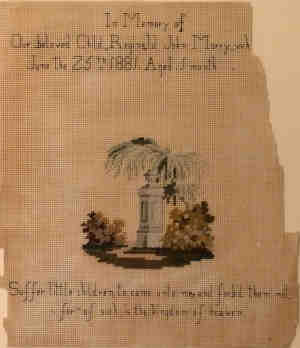 In Memory of
Our beloved Child, Reginald John
June the 25th 1881 Aged 1 month
Suffer little children to come unto me, and forbid them not
for of such is the kingdom of heaven